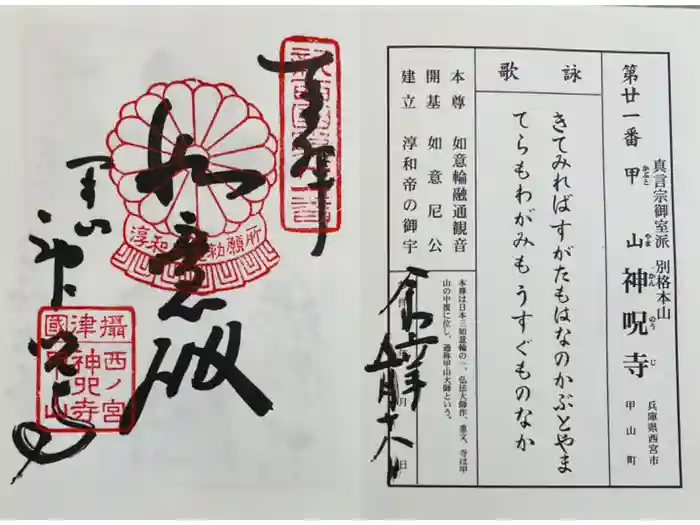 第廿一番 甲山 神呪寺
かぶと やま かん のう じ
真言宗御室派 別格本山
兵庫県西宮市
甲山町
詠歌
きてみればすがたもはなのかぶとやま
てらもわがみもうすぐものなか
本尊 如意輪融通観音
開基 如意尼公
建立 淳和帝の御宇
本尊は日本三如意輪の一、弘法大師作、重文、寺は甲
山の中腹に位し、通称甲山大師という。
月 日
奉拝
如意殿
甲山
神呪寺
淳和 勅願所
攝津國
西ノ宮
神呪寺
甲山